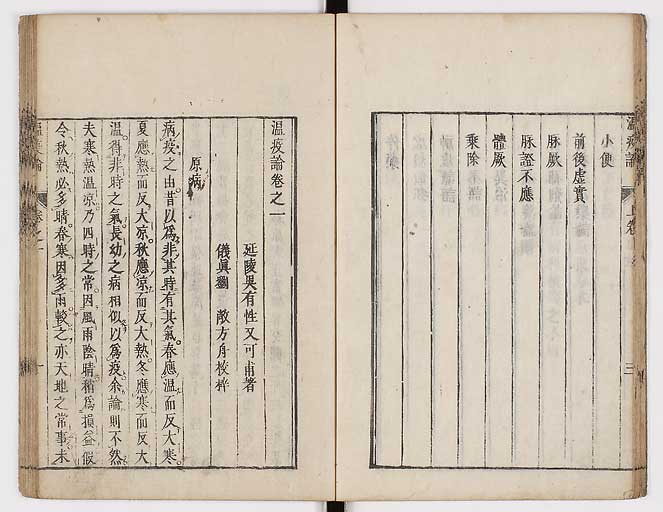 溫疫論
上卷
三
小便
前後虛實
脉厥
脉證不應
體厥
乘除
溫疫論卷之一
延陵吳有性又可甫著
儀眞劉敞方舟校梓
原病
病疫之由昔以爲非其時有其氣春應溫而反大寒
夏應熱而反大凉秋應凉而反大熱冬應寒而反大
溫得非時之氣長幼之病相似以爲疫余論則不然
夫寒熱溫凉乃四時之常因風雨陰晴稍爲損益假
令秋熱必多晴春寒因多雨較之亦天地之常事未
溫疫論
卷之一
一